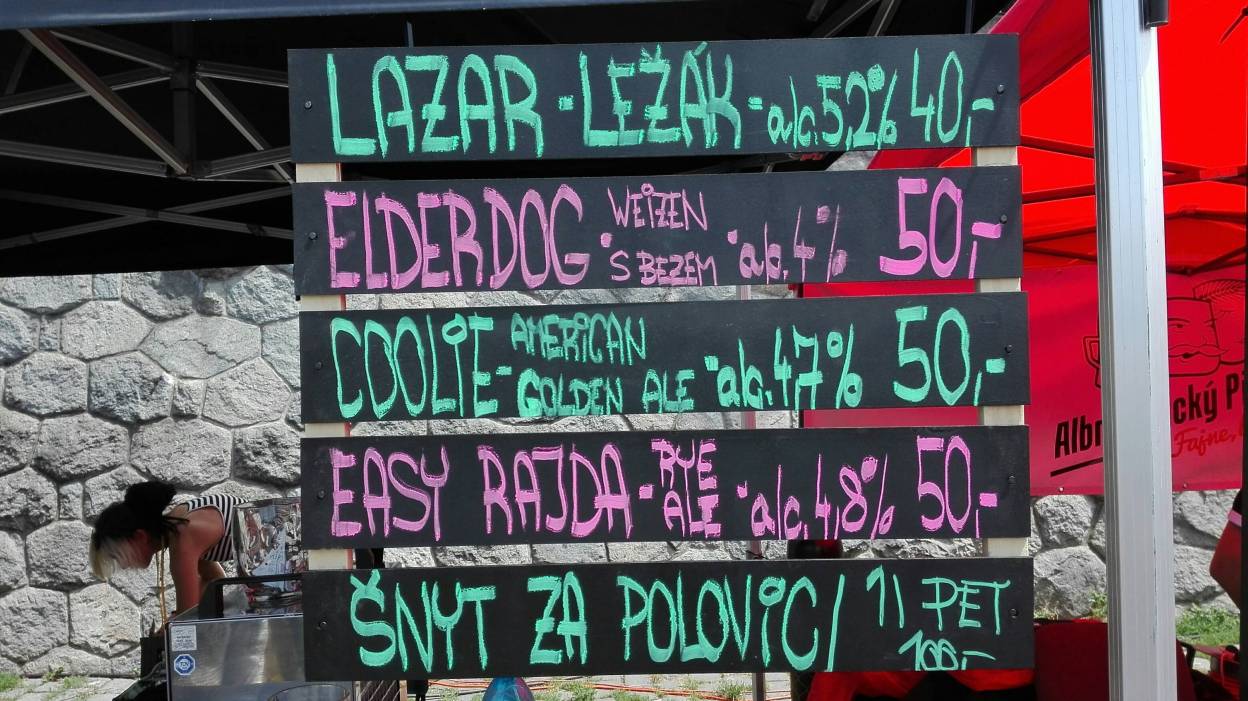 LAZAR - LEŽÁK - alc. 5,2% 40,-
ELDERDOG WEIZEN S BEZEM alc. 4% 50,-
COOLIE - AMERICAN GOLDEN ALE alc. 4,7% 50,-
EASY RAJDA - RYE ALE - alc. 4,8% 50,-
ŠNYT ZA POLOVIC / 1l PET 100,-
Fajne,